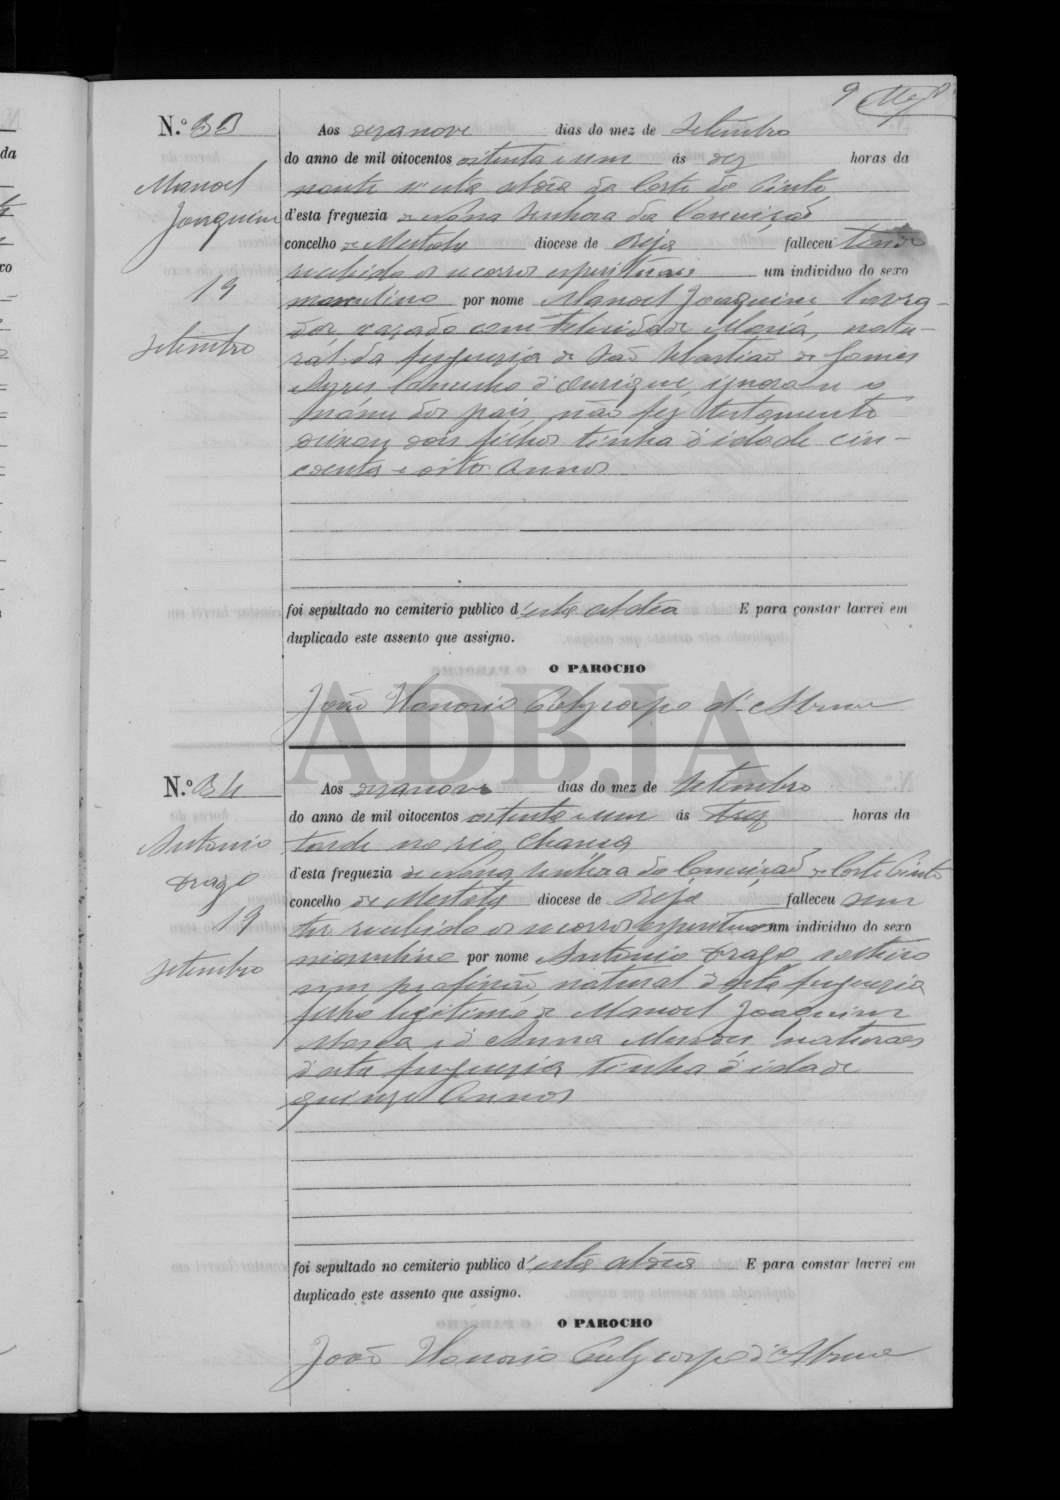 9
N.º 33 Aos dezanove dias do mez de Setembro
do anno de mil oitocentos oitenta e um ás dez horas da
Manoel Joaquim
19
Setembro
noute n'esta aldeia da Corte do Pinto
d'esta freguezia de Nossa Senhora da Conceição
concelho de Mertola diocese de Beja falleceu tendo
recebido os socorros espirituaes um individuo do sexo
masculino por nome Manoel Joaquim, lavra-
dor, cazado com Felicidade Maria, natu-
ral da freguezia de São Sebastião de Gomes
Ayres Concelho d'Ourique, ignora-se os
nomes dos pais, não fez testamento
deixou dois filhos tinha d'idade cin-
coenta e oito annos
foi sepultado no cemiterio publico d'esta aldeia E para constar lavrei em
duplicado este assento que assigno.
O PAROCHO
João Honorio d'Abreu
ADBJA
N.º 34 Aos dezanove dias do mez de Setembro
do anno de mil oitocentos oitenta e um ás trez horas da
Antonio
Drago
19
Setembro
tarde no rio Chança
d'esta freguezia de Nossa Senhora da Conceição de Corte Pinto
concelho de Mertola diocese de Beja falleceu sem
ter recebido os socorros espirituaes um individuo do sexo
masculino por nome Antonio Drago solteiro
sem profissão, natural d'esta freguezia
filho legitimo de Manoel Joaquim
e d'Anna naturaes
d'esta freguezia tinha d'idade
quinze annos
foi sepultado no cemiterio publico d'esta aldeia E para constar lavrei em
duplicado este assento que assigno.
O PAROCHO
João Honorio d'Abreu